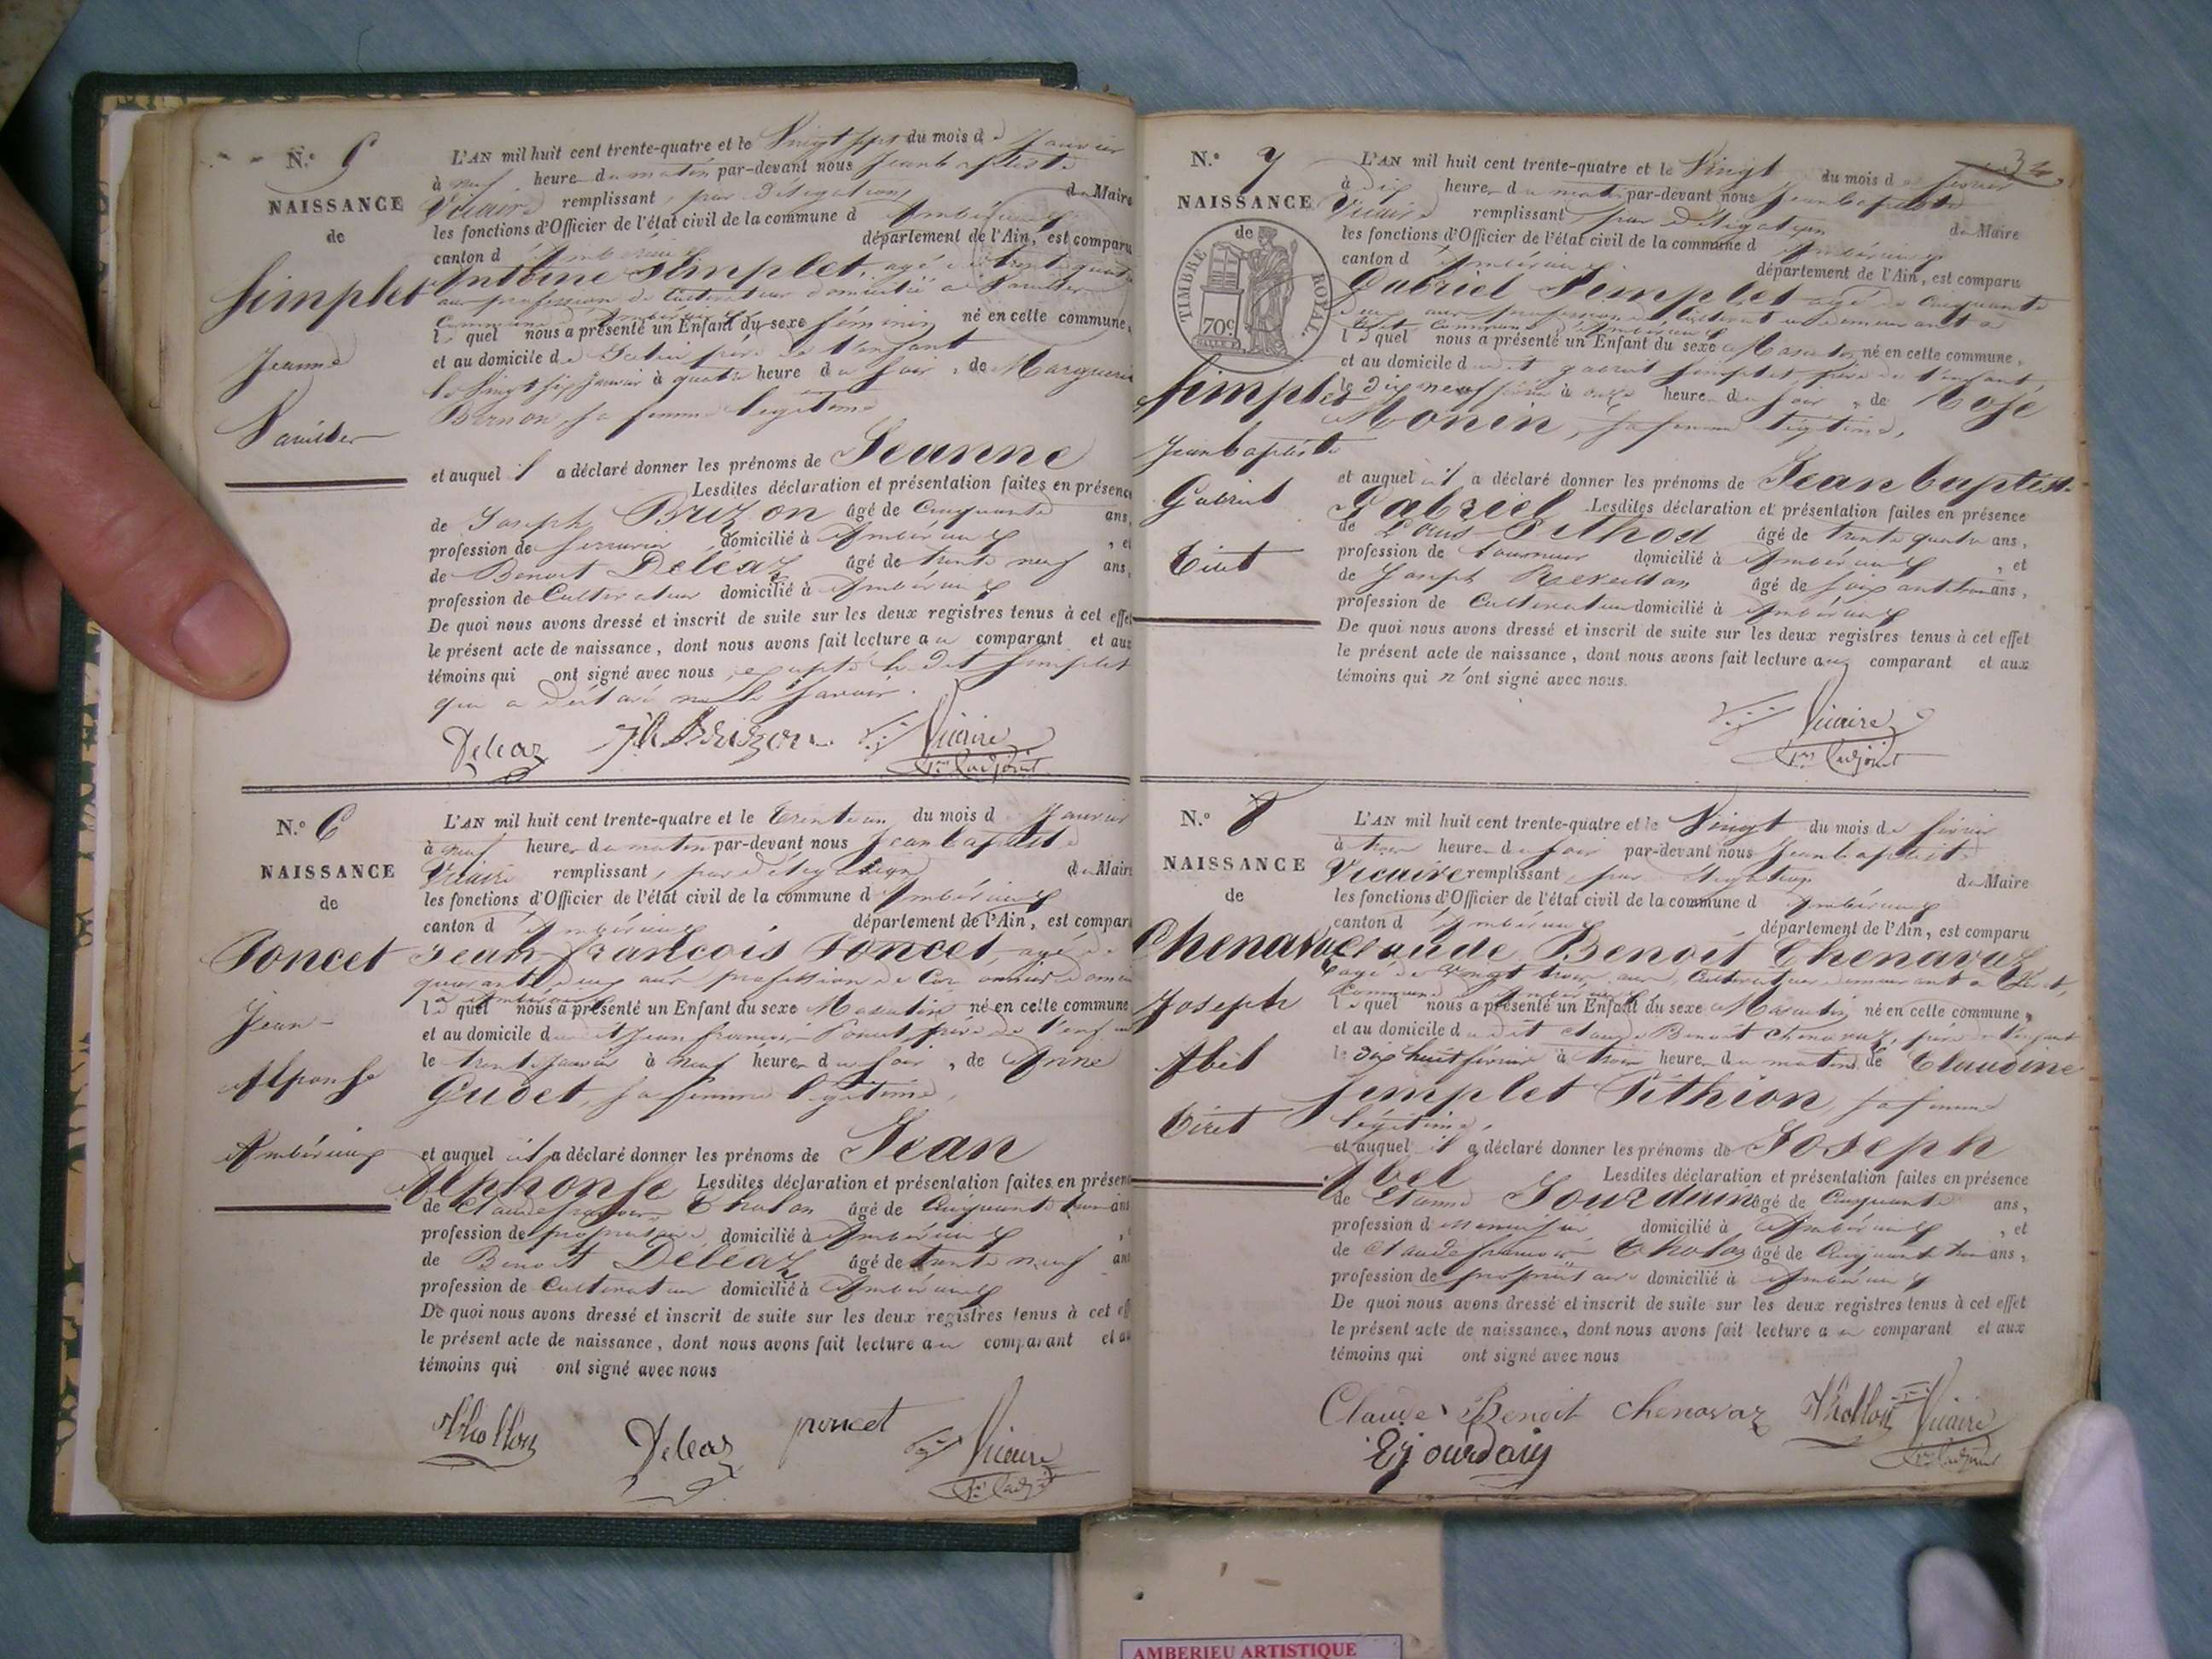 N.° 5
NAISSANCE
de
Simplet
Jeanne
Vareilles
L'AN mil huit cent trente-quatre et le Vingt sept du mois de Janvier
à neuf heure du matin par-devant nous Jean baptiste
Vicaire remplissant, par délégation du Maire
les fonctions d'Officier de l'état civil de la commune d'Ambérieux
canton d'Ambérieux département de l'Ain, est comparu
Antoine Simplet, agé de trente quatre
ans profession de Cultivateur domicilié à Vareilles
Commune d'Ambérieux
lequel nous a présenté un Enfant du sexe féminin né en cette commune,
et au domicile de père de l'enfant
le Vingt six Janvier à quatre heure du soir, de Marguerite
Bernon, sa femme légitime
et auquel il a déclaré donner les prénoms de Jeanne
Lesdites déclaration et présentation faites en présence
de Joseph Brizon âgé de Cinquante ans,
profession de serrurier domicilié à Ambérieux, et
de Benoit Deléaz âgé de trente neuf ans,
profession de Cultivateur domicilié à Ambérieux
De quoi nous avons dressé et inscrit de suite sur les deux registres tenus à cet effet
le présent acte de naissance, dont nous avons fait lecture au comparant et aux
témoins qui ont signé avec nous, excepté le dit Simplet
qui a déclaré ne le savoir.
Deleaz Jh Brizon Vicaire
1er adjoint
N.° 6
NAISSANCE
de
Poncet
Jean
Alphonse
Ambérieux
L'AN mil huit cent trente-quatre et le trente un du mois d Janvier
à neuf heure du matin par-devant nous Jean baptiste
Vicaire remplissant, par délégation du Maire
les fonctions d'Officier de l'état civil de la commune d'Ambérieux
canton d'Ambérieux département de l'Ain, est comparu
Jean françois Poncet, agé de
quarante deux ans profession de
à Ambérieux
lequel nous a présenté un Enfant du sexe Masculin né en cette commune
et au domicile du dit Jean françois Poncet père de l'enfant
le trente Janvier à neuf heure du soir, de Anne
Gudet, sa femme légitime,
et auquel il a déclaré donner les prénoms de Jean
Alphonse Lesdites déclaration et présentation faites en présence
de Claude françois Tholon âgé de Cinquante trois ans
profession de propriétaire domicilié à Ambérieux
de Benoit Deléaz âgé de trente neuf ans
profession de Cultivateur domicilié à Ambérieux
De quoi nous avons dressé et inscrit de suite sur les deux registres tenus à cet eff
le présent acte de naissance, dont nous avons fait lecture au comparant et au
témoins qui ont signé avec nous
Thollon Deleaz poncet Vicaire
1er adjt
N.° 7
NAISSANCE
de
TIMBRE ROYAL.
70c
Simplet
Jean baptiste
Gabriel
Tiret
L'AN mil huit cent trente-quatre et le Vingt du mois de février
à dix heure du matin par-devant nous Jean baptiste
Vicaire remplissant par délégation du Maire
les fonctions d'Officier de l'état civil de la commune d'Ambérieux
canton d'Ambérieux département de l'Ain, est comparu
Gabriel Simplet agé de Cinquante
deux ans profession de Cultivateur demeurant à
Tiret Commune d'Ambérieux
lequel nous a présenté un Enfant du sexe Masculin né en cette commune,
et au domicile du dit gabriel Simplet père de l'enfant,
le dix neuf février à onze heure du soir, de Rose
Monin, sa femme légitime,
et auquel il a déclaré donner les prénoms de Jean baptiste
Gabriel Lesdites déclaration et présentation faites en présence
de Louis Pithod âgé de trente quatre ans,
profession de tourneur domicilié à Ambérieux, et
de Joseph Reveillon âgé de ans,
profession de Cultivateur domicilié à Ambérieux
De quoi nous avons dressé et inscrit de suite sur les deux registres tenus à cet effet
le présent acte de naissance, dont nous avons fait lecture aux comparant et aux
témoins qui n'ont signé avec nous.
Vicaire
1er adjoint
N.° 8
NAISSANCE
de
Chenavaz
Joseph
Abel
Tiret
L'AN mil huit cent trente-quatre et le Vingt du mois de février
à trois heure du soir par-devant nous Jean baptiste
Vicaire remplissant, par délégation du Maire
les fonctions d'Officier de l'état civil de la commune d'Ambérieux
canton d'Ambérieux département de l'Ain, est comparu
Claude Benoit Chenavaz
agé de Vingt trois ans, Cultivateur demeurant à Tiret,
Commune d'Ambérieux
lequel nous a présenté un Enfant du sexe Masculin né en cette commune,
et au domicile du dit Claude Benoit Chenavaz, père de l'enfant
le dix huit février à trois heure du matin de Claudine
Simplet Pithion, sa femme
légitime,
et auquel il a déclaré donner les prénoms de Joseph
Abel Lesdites déclaration et présentation faites en présence
de Etienne Jourdain âgé de Cinquante ans,
profession de menuisier domicilié à Ambérieux, et
de Claude françois Tholon âgé de Cinquante trois ans,
profession de propriétaire domicilié à Ambérieux
De quoi nous avons dressé et inscrit de suite sur les deux registres tenus à cet effet
le présent acte de naissance, dont nous avons fait lecture au comparant et aux
témoins qui ont signé avec nous
Claude Benoit Chenavaz Thollon Vicaire
E jourdain 1er adjoint
AMBERIEU ARTISTIQUE